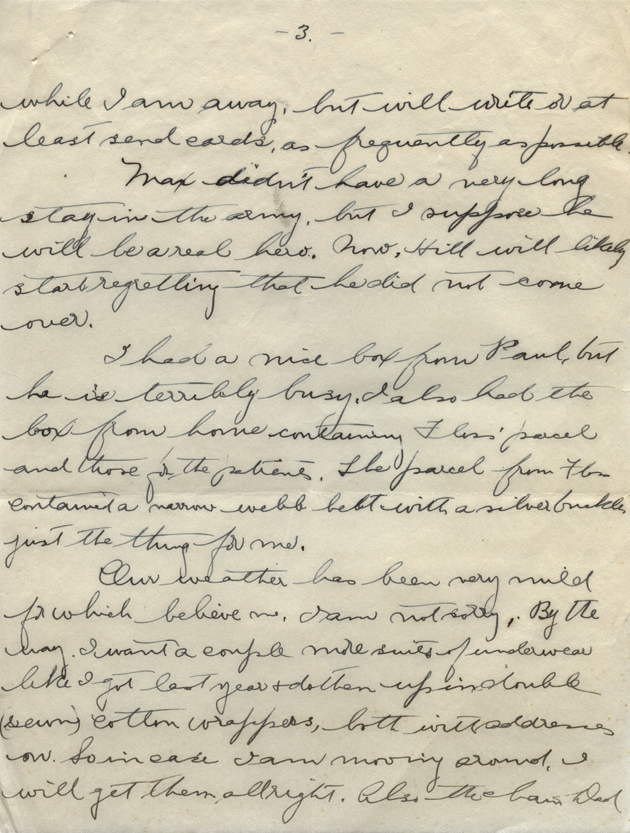 - 3. -
while I am away, but will write or at
least send cards, as frequently as possible.
Max didn't have a very long
stay in the army, but I suppose he
will be a real hero. Now, Hill will likely
start regretting that he did not come
over.
I had a nice box from Paul, but
he is terribly busy. I also had the
box from home containing Floss' parcel
and those for the patients. The parcel from Floss
contained a narrow webb belt with a silver buckle,
just the thing for me.
Our weather has been very mild
for which believe me, I am not sorry. By the
way. I want a couple more suits of underwear
like I got last year & do them up in double
(sewn) cotton wrappers, both with addresses
on. So in case I am moving around, I
will get them allright. Also the Dad